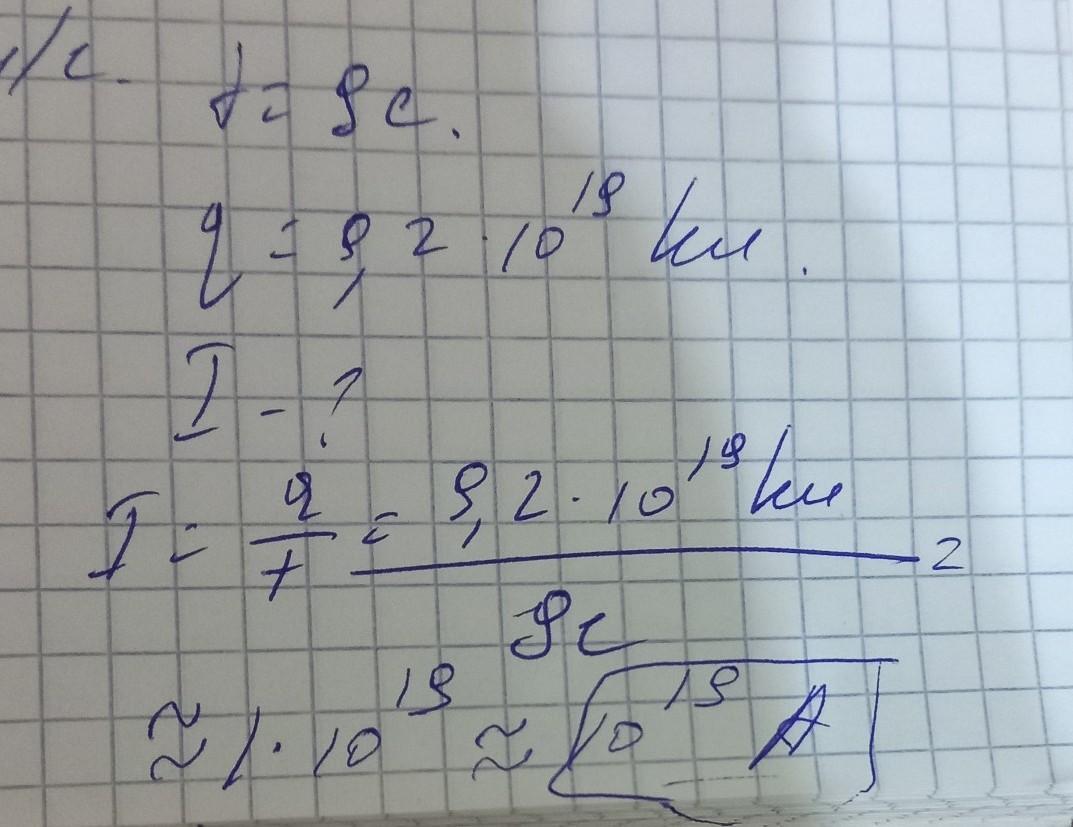 /с.
t = 9 с.
q = 9,2 · 10^19 Кл.
I - ?
I = q/t = 9,2 · 10^19 Кл / 9 с =
≈ 1 · 10^19 ≈ 10^19 А